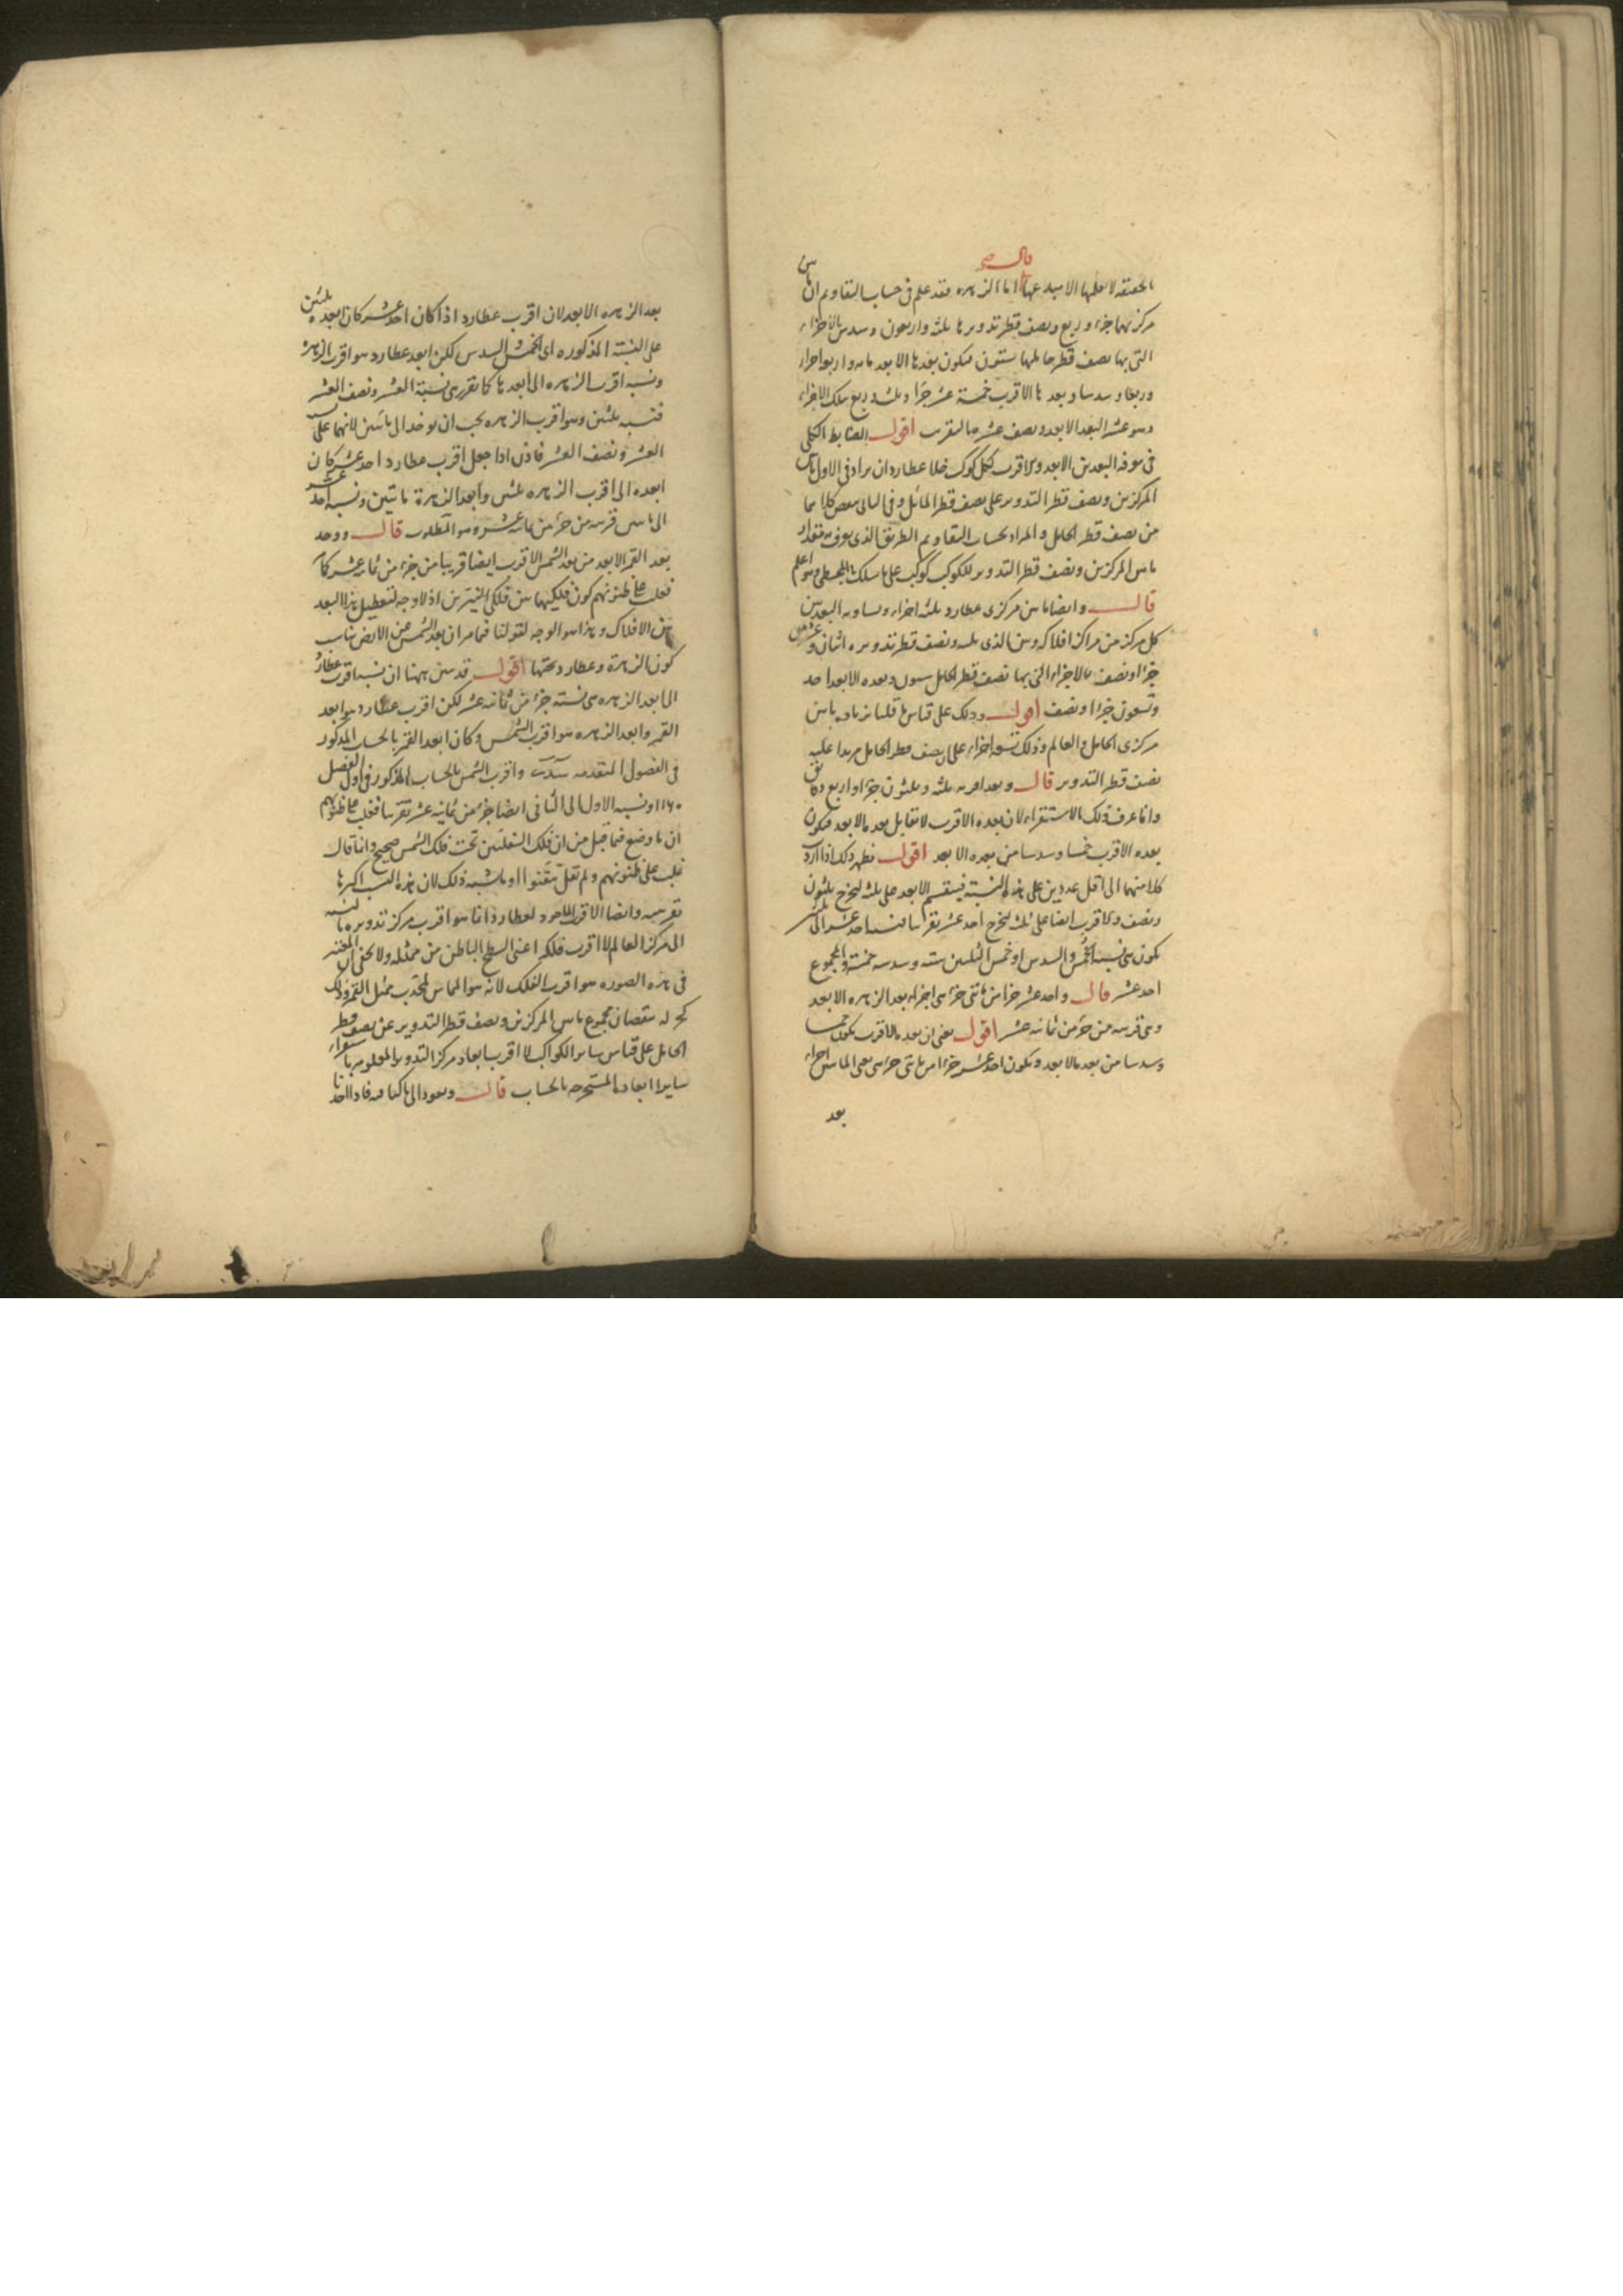 قال
الحقيقة لا يعلمها الا مبدعها اما الزهره فقد علم فى حساب التقاويم ان ما بين
مركزيها جزء وربع ونصف قطر تدويرها ثلثه واربعون وسدس بالاجزاء
التى بها نصف قطر حاملها ستون فيكون بعدها الابعد مايه واربعه اجزاء
وربعا وسدسا وبعدها الاقرب خمسة عشر جزءا وثلث وربع بتلك الاجزاء
وهو عشر البعد الابعد ونصف عشره بالتقريب اقول الضابط الكلى
فى معرفة البعدين الابعد والاقرب لكل كوكب خلا عطارد ان يزاد فى الاول ما بين
المركزين ونصف قطر التدوير على نصف قطر المائل وفى الثانى ينقص كلاهما
من نصف قطر الحامل والمراد بحساب التقاويم الطريق الذى يعرف به مقدار
ما بين المركزين ونصف قطر التدوير لكوكب كوكب على ما سلك فى المجسطى وهو اعلم
قال وايضا ما بين مركزى عطارد ثلثه اجزاء ويساويه البعد بين
كل مركز من مراكز افلاكه وبين الذى يليه ونصف قطر تدويره اثنان وعشرون
جزءا ونصف بالاجزاء التى بها نصف قطر الحامل ستون وبعده الابعد احد
وتسعون جزءا ونصف اقول وذلك على قياس ما قلنا بزياده ما بين
مركزى الحامل والعالم وذلك تسعه اجزاء على نصف قطر الحامل مزيدا عليه
نصف قطر التدوير قال وبعده اقربه ثلثه وثلثون جزءا واربع دقائق
وانما عرف ذلك الاستقراء لان بعده الاقرب لا يقابل بعده الابعد فيكون
بعده الاقرب خمسا وسدسا من بعده الابعد اقول يظهر ذلك اذا رد
كلا منهما الى اقل عددين على هذه النسبة فيقسم الابعد على ثلثه ليخرج ثلثون
ونصف والاقرب ايضا على ثلثه ليخرج احد عشر تقريبا فنسبه احد عشر الى ثلثين
يكون هى نسبة الخمس والسدس اذ خمس الثلثين سته وسدسه خمسة والمجموع
احد عشر قال واحد عشر جزءا من مائتى جزء هى اجزاء بعد الزهره الابعد
وهى قريبه من جزء من ثمانيه عشر اقول يعنى ان بعده الاقرب يكون خمسا
وسدسا من بعده الابعد ويكون احد عشر جزءا من مائتى جزء هى يعنى المائتين اجزاء
بعد
بعد الزهره الابعد لان اقرب عطارد اذا كان احد عشر كان ابعده ثلثين
على النسبة المذكوره اى الخمس والسدس لكن ابعد عطارد هو اقرب الزهره
ونسبه اقرب الزهره الى ابعدها كما تقرر هى نسبة العشر ونصف العشر
فنسبه ثلثين وهو اقرب الزهره يجب ان يوخذ الى مائتين لانهما على نسبه
العشر ونصف العشر فاذن اذا جعل اقرب عطارد احد عشر كان
ابعده اى اقرب الزهره ثلثين وابعد الزهرة مائتين ونسبه احد عشر
الى مائتين قريبه من جزء من ثمانيه عشر وهو المطلوب قال ووجد
بعد القمر الابعد من بعد الشمس الاقرب ايضا قريبا من جزء من ثمانيه عشر كما
فغلب على ظنونهم كون فلكيهما بين فلكى النيرين اذ لا وجه لتعطيل هذا البعد
بين الافلاك وهذا هو الوجه لقولنا فيما مر ان بعد الشمس عن الارض يناسب
كون الزهرة وعطارد تحتها اقول قد بين ههنا ان نسبه اقرب عطارد
الى ابعد الزهره هى نسبة جزء من ثمانيه عشر لكن اقرب عطارد هو ابعد
القمر وابعد الزهره هو اقرب الشمس وكان ابعد القمر بالحساب المذكور
فى الفصول المتقدمه واقرب الشمس بالحساب المذكور فى اول الفصل
١١٦٠ ونسبه الاول الى الثانى ايضا جزء من ثمانيه عشر تقريبا فغلب على ظنونهم
ان ما وضع فيما قبل من ان فلك السفليين تحت فلك الشمس صحيح وانما قال
غلب على ظنونهم ولم يقل تيقنوا او ما يشبه ذلك لان هذه النسب اكثرها
تقريبيه وايضا الاقرب الماخوذ لعطارد انما هو اقرب مركز تدويره بالنسبه
الى مركز العالم لا اقرب فلكه اعنى السطح الباطن من ممثله ولا يخفى ان المعتبر
فى هذه الصوره هو اقرب الفلك لانه هو المماس لمحدب ممثل القمر وذلك
نقصان مجموع ما بين المركزين ونصف قطر التدوير عن نصف قطر
الحامل على قياس ساير الكواكب لا اقرب ابعاد مركز التدوير المعلوم باستقراء
ساير ابعاده المستخرجه بالحساب قال ونعود الى ما كنا فيه فاذا اخذنا